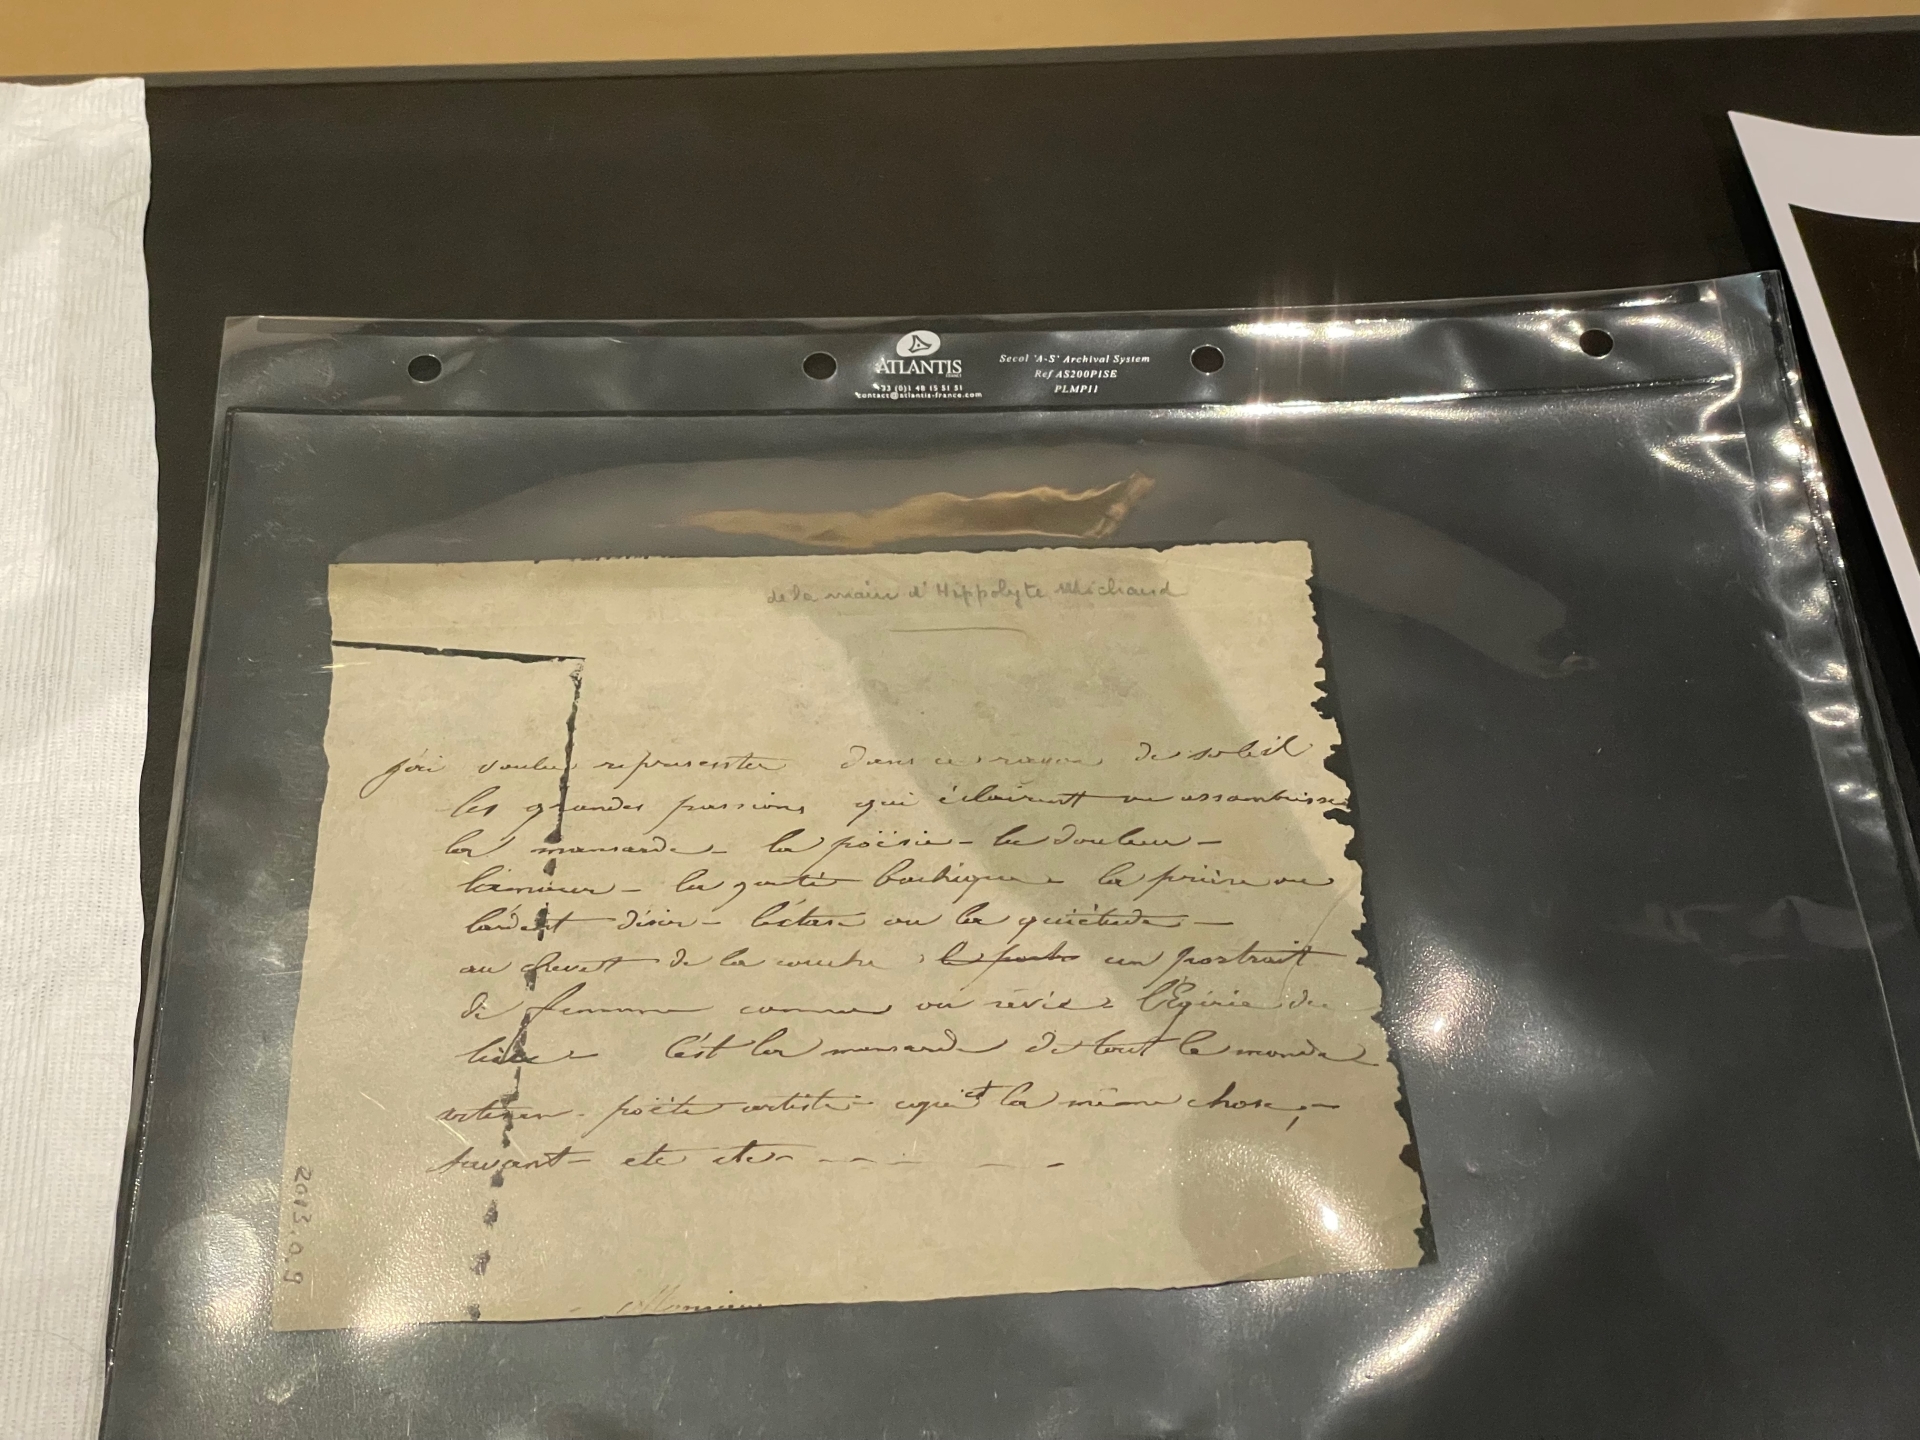 ATLANTIS
FRANCE
33 (0)1 48 15 51 51
contact@atlantis-france.com
Secol 'A-S' Archival System
Ref AS200P1SE
PLMP11
de la main d'Hippolyte Michaud
j'ai voulu representer dans ce rayon de soleil
les grandes passions qui éclairent ou assombrisse
la mansarde - la poësie - la douleur -
l'amour - la gaité bachique - la prière ou
l'ardent désir - l'extase ou la quiétude -
au chevet de la couche un portrait
de femme comme on rêve l'Egérie du
lieu - C'est la mansarde de tout le monde
poëte artiste la même chose, -
savant - etc etc - - - - - -
Monsieur
2013.0.9